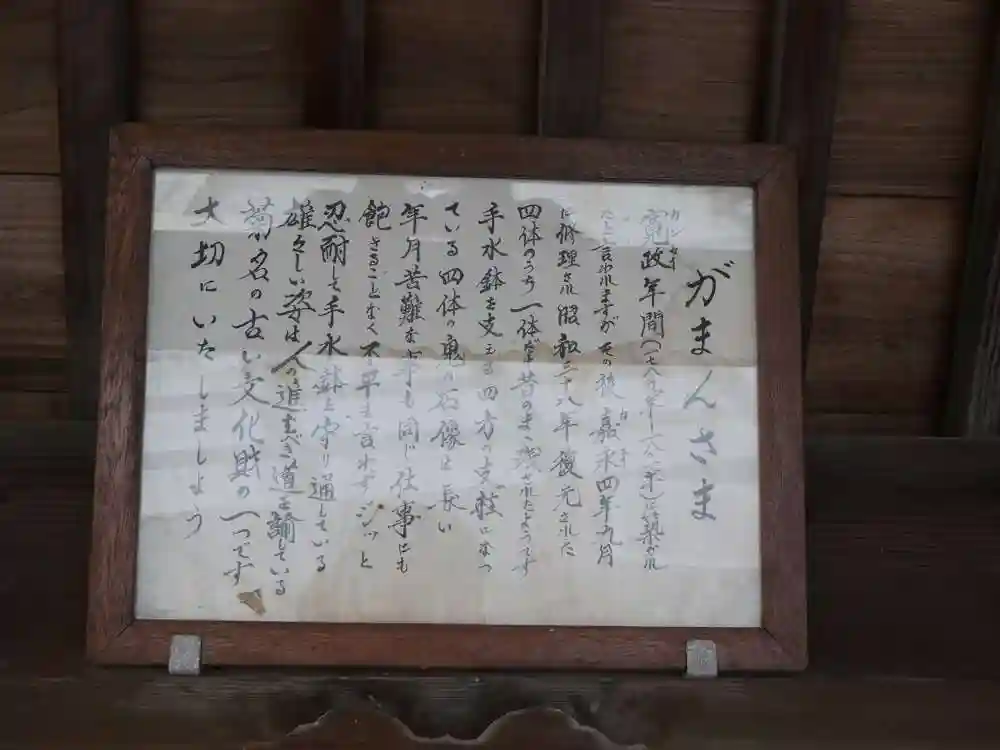 がまんさま
カンセイ
寛政年間(一七八九年〜一八〇〇年)に築かれ
たと言われますが その後 嘉永四年九月
カエイ
に修理され 昭和三十八年復元された
四体のうち一体だけ昔のまゝ残されたようです
手水鉢を支える四方の支柱になつ
ている四体の鬼の石像は長い
年月苦難な事も同じ仕事にも
飽きることなく 不平も言わずジッと
忍耐して手水鉢を守り通している
雄々しい姿は人の進むべき道を諭している
菊名の古い文化財の一つです
大切にいたしましよう